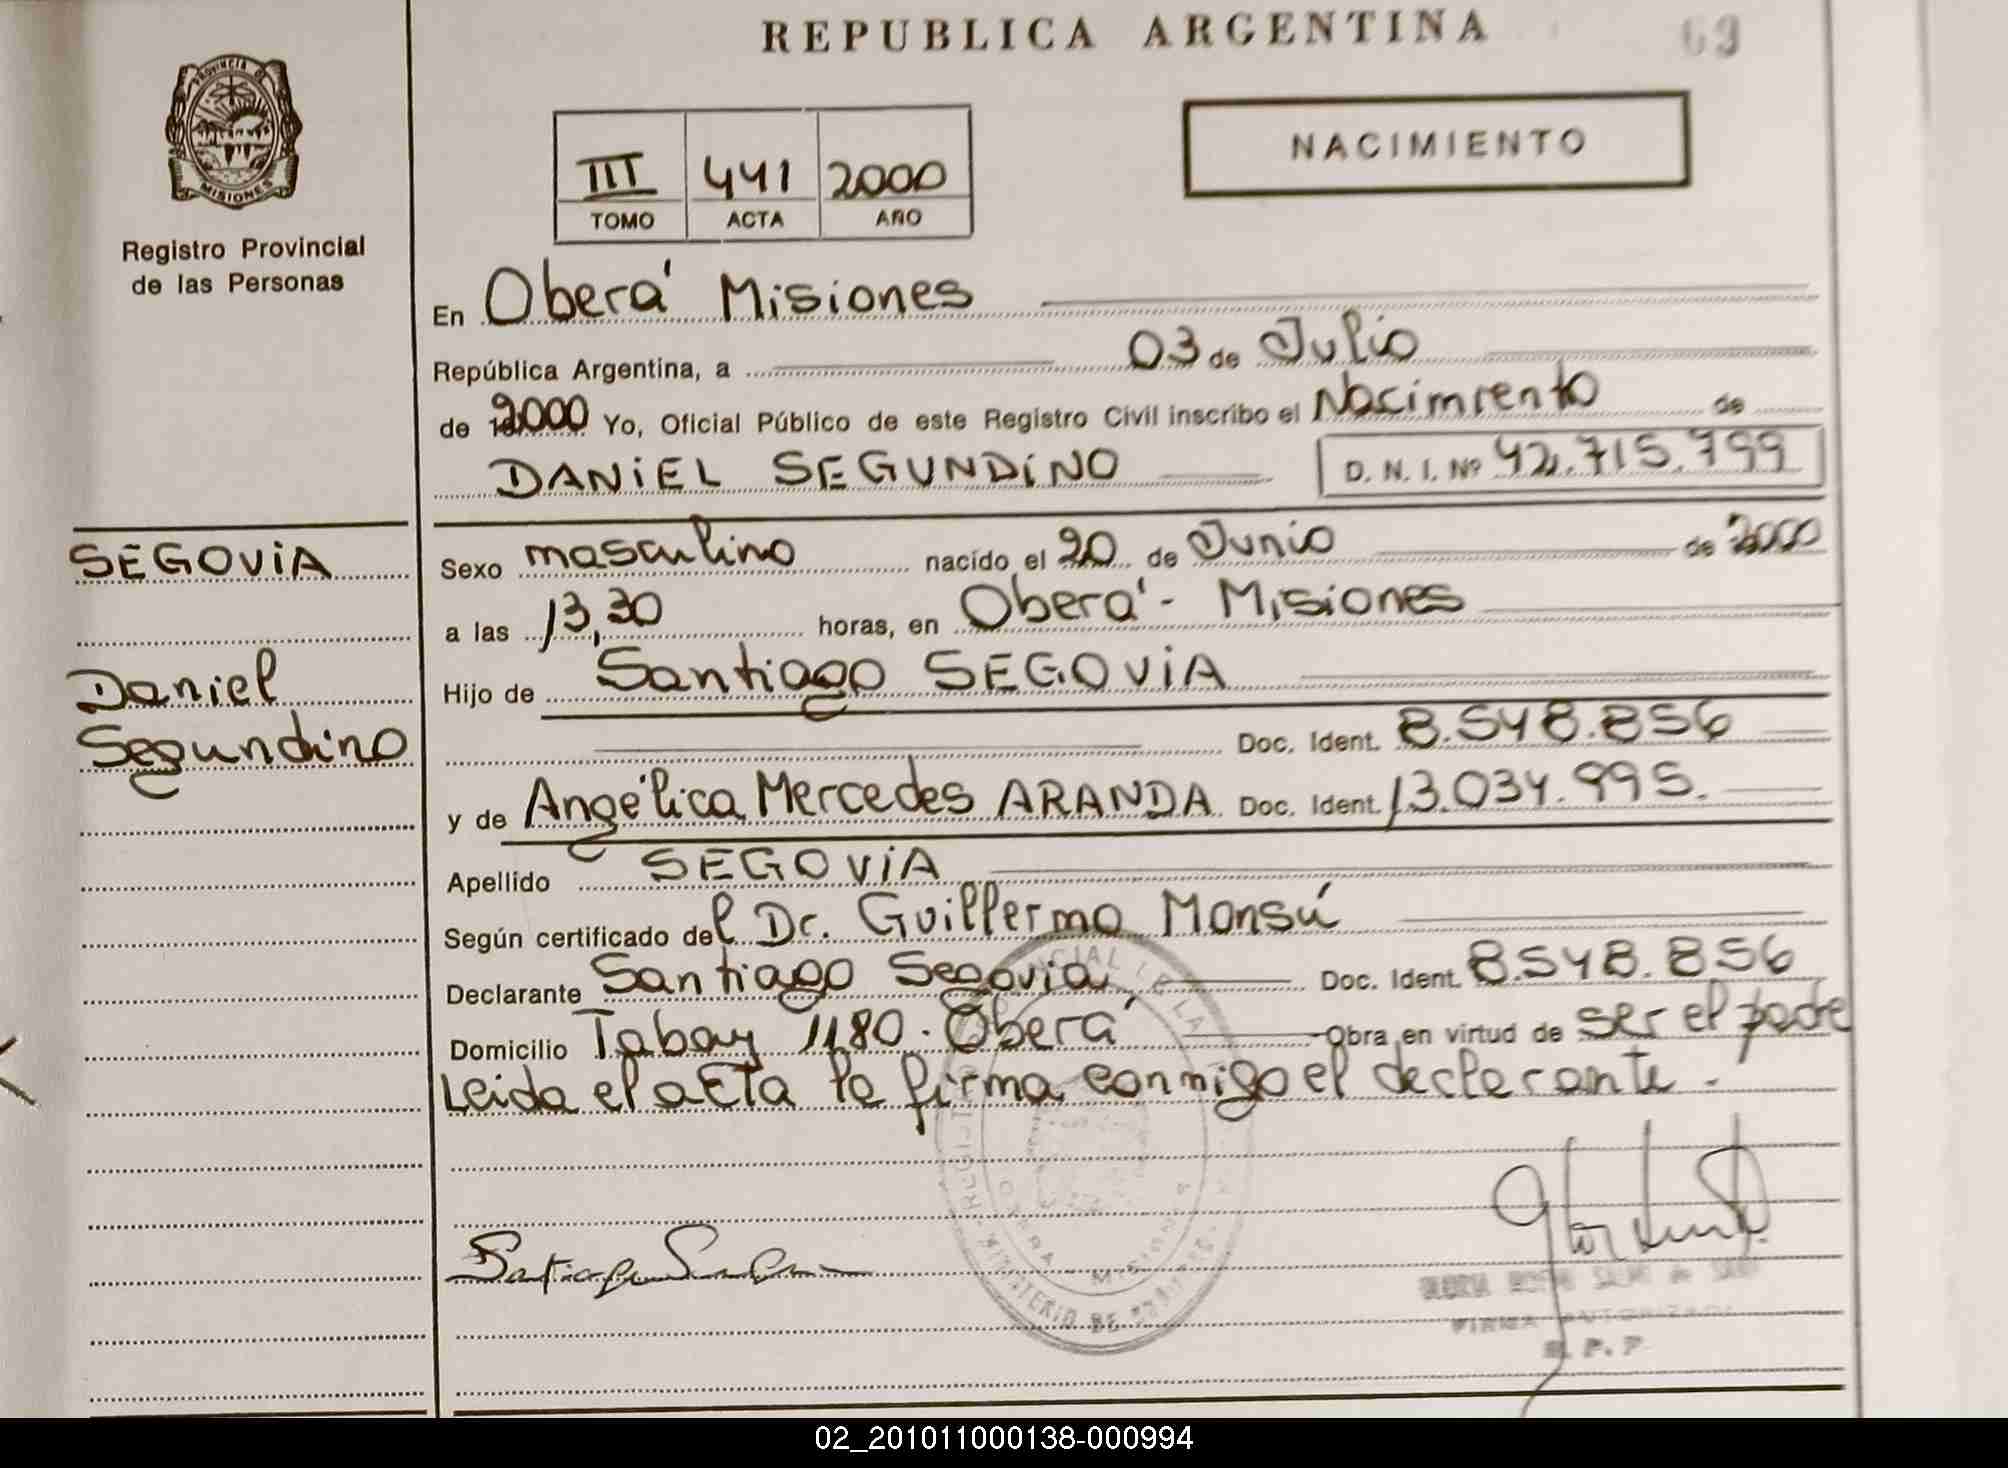 REPUBLICA ARGENTINA
69
PROVINCIA DE
MISIONES
Registro Provincial
de las Personas
III 441 2000
TOMO ACTA AÑO
NACIMIENTO
En Oberá Misiones
República Argentina, a 03 de Julio
de 2000 Yo, Oficial Público de este Registro Civil inscribo el Nacimiento de
DANIEL SEGUNDINO D. N. I. Nº 42.715.799
SEGOVIA
Daniel
Segundino
Sexo masculino nacido el 20 de Junio de 2000
a las 13,30 horas, en Oberá - Misiones
Hijo de Santiago SEGOVIA
Doc. Ident. 8.548.856
y de Angélica Mercedes ARANDA Doc. Ident. 13.034.995.
Apellido SEGOVIA
Según certificado del Dr. Guillermo Monsú
Declarante Santiago Segovia Doc. Ident. 8.548.856
Domicilio Tabay 1180. Oberá Obra en virtud de ser el padre
Leida el acta la firma conmigo el declarante.
MINISTERIO DE
OBERA - MISIONES
FIRMA AUTORIZADA
R. P. P
02_201011000138-000994